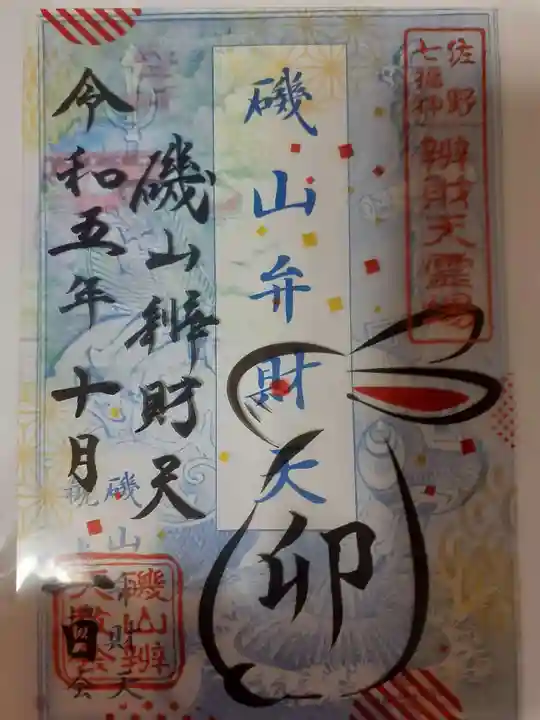 佐野
七福神
辨財天霊場
磯山弁財天
卯
磯山辨財天
令和五年十月一日
磯山
財天
磯山辨